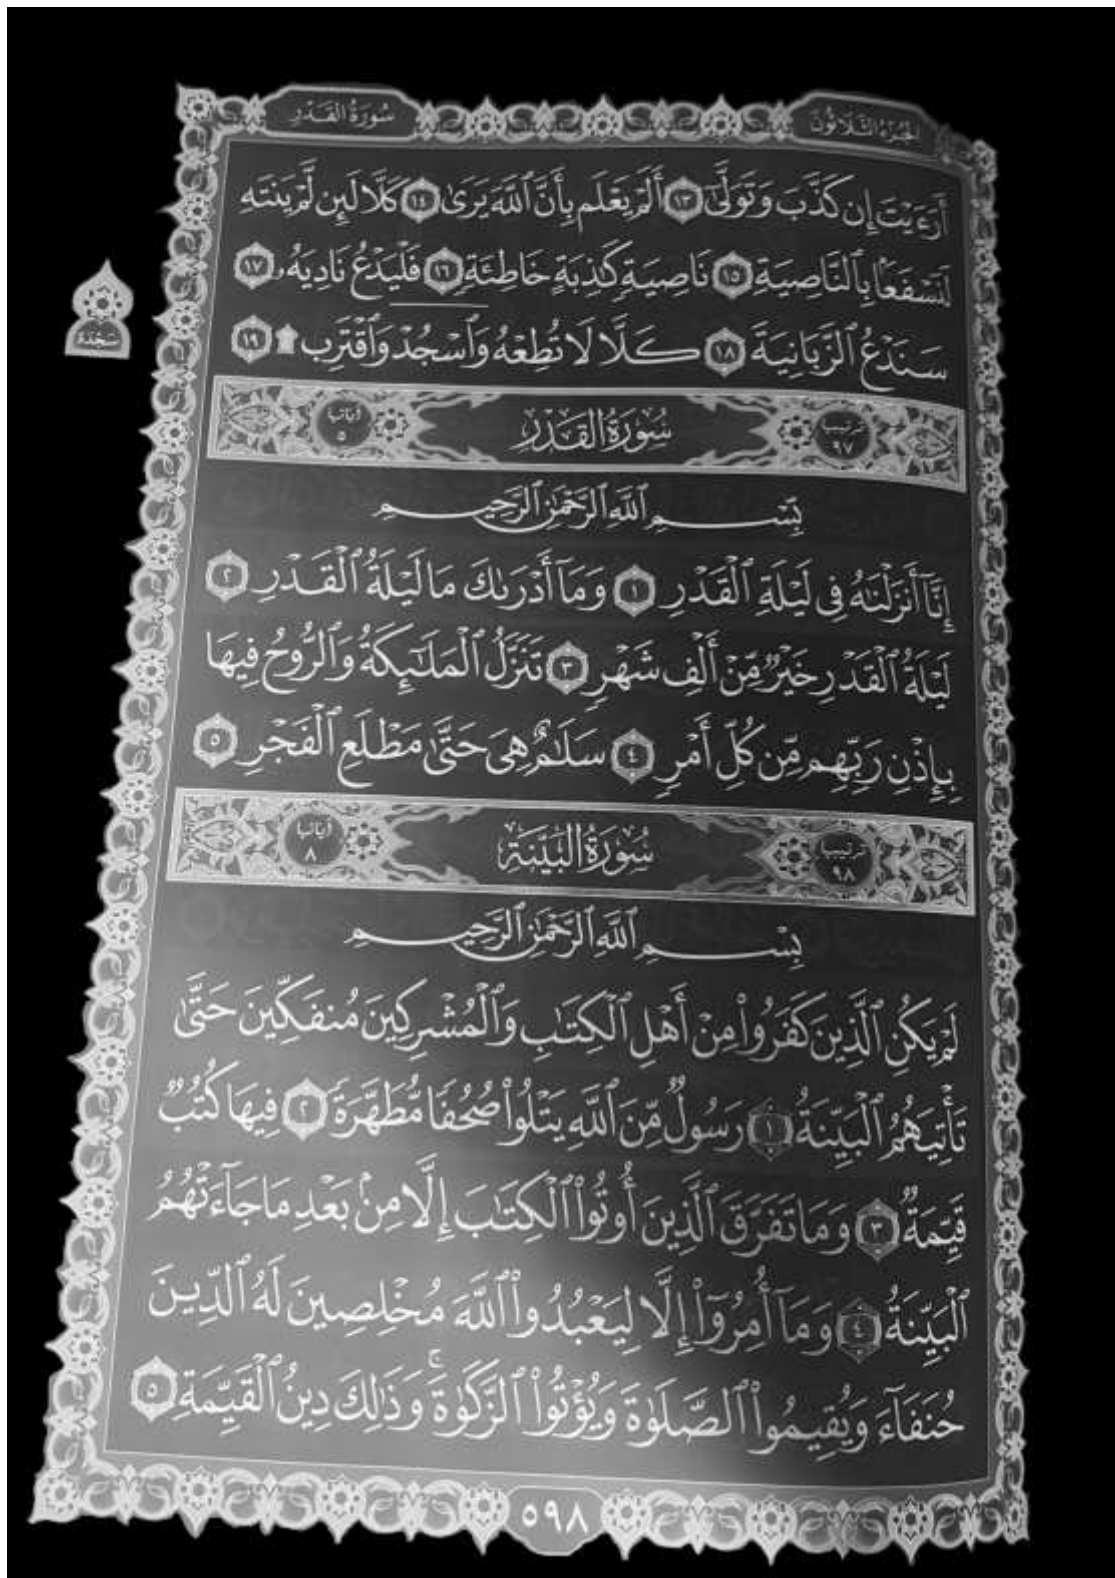 الجزء الثلاثون
سورة القدر
أَرَءَيْتَ إِن كَذَّبَ وَتَوَلَّىٰٓ ١٣ أَلَمْ يَعْلَم بِأَنَّ ٱللَّهَ يَرَىٰ ١٤ كَلَّا لَئِن لَّمْ يَنتَهِ
لَنَسْفَعًۢا بِٱلنَّاصِيَةِ ١٥ نَاصِيَةٍ كَٰذِبَةٍ خَاطِئَةٍ ١٦ فَلْيَدْعُ نَادِيَهُۥ ١٧
سَنَدْعُ ٱلزَّبَانِيَةَ ١٨ كَلَّا لَا تُطِعْهُ وَٱسْجُدْ وَٱقْتَرِب ۩ ١٩
سجدة
ترتيبها ٩٧ سُورَةُ القَدْرِ آياتها ٥
بِسْمِ ٱللَّهِ ٱلرَّحْمَٰنِ ٱلرَّحِيمِ
إِنَّآ أَنزَلْنَٰهُ فِى لَيْلَةِ ٱلْقَدْرِ ١ وَمَآ أَدْرَىٰكَ مَا لَيْلَةُ ٱلْقَدْرِ ٢
لَيْلَةُ ٱلْقَدْرِ خَيْرٌ مِّنْ أَلْفِ شَهْرٍ ٣ تَنَزَّلُ ٱلْمَلَٰٓئِكَةُ وَٱلرُّوحُ فِيهَا
بِإِذْنِ رَبِّهِم مِّن كُلِّ أَمْرٍ ٤ سَلَٰمٌ هِىَ حَتَّىٰ مَطْلَعِ ٱلْفَجْرِ ٥
ترتيبها ٩٨ سُورَةُ البَيِّنَةِ آياتها ٨
بِسْمِ ٱللَّهِ ٱلرَّحْمَٰنِ ٱلرَّحِيمِ
لَمْ يَكُنِ ٱلَّذِينَ كَفَرُوا۟ مِنْ أَهْلِ ٱلْكِتَٰبِ وَٱلْمُشْرِكِينَ مُنفَكِّينَ حَتَّىٰ
تَأْتِيَهُمُ ٱلْبَيِّنَةُ ١ رَسُولٌ مِّنَ ٱللَّهِ يَتْلُوا۟ صُحُفًا مُّطَهَّرَةً ٢ فِيهَا كُتُبٌ
قَيِّمَةٌ ٣ وَمَا تَفَرَّقَ ٱلَّذِينَ أُوتُوا۟ ٱلْكِتَٰبَ إِلَّا مِنۢ بَعْدِ مَا جَآءَتْهُمُ
ٱلْبَيِّنَةُ ٤ وَمَآ أُمِرُوٓا۟ إِلَّا لِيَعْبُدُوا۟ ٱللَّهَ مُخْلِصِينَ لَهُ ٱلدِّينَ
حُنَفَآءَ وَيُقِيمُوا۟ ٱلصَّلَوٰةَ وَيُؤْتُوا۟ ٱلزَّكَوٰةَ ۚ وَذَٰلِكَ دِينُ ٱلْقَيِّمَةِ ٥
٥٩٨